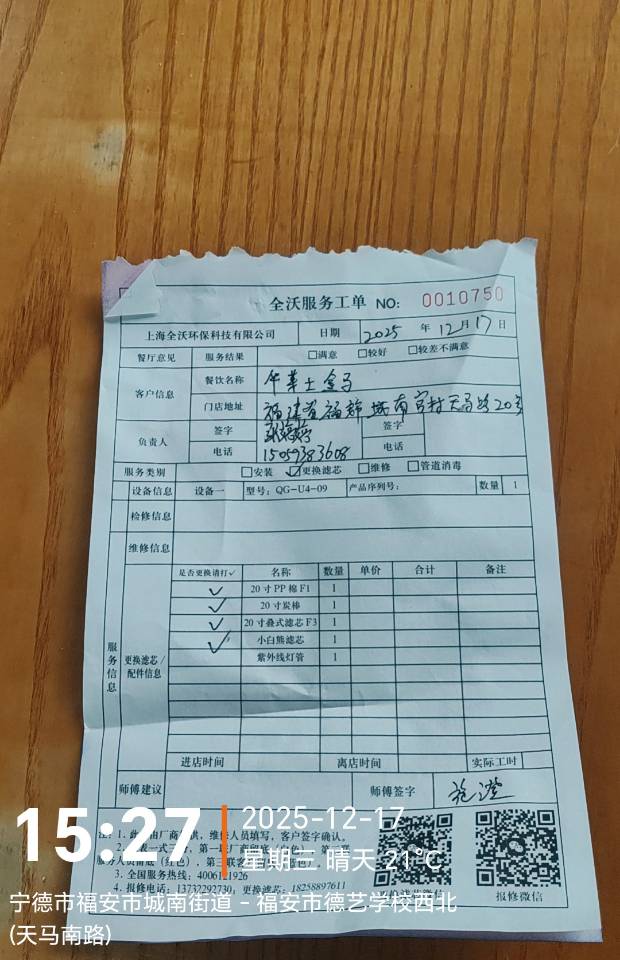 全沃服务工单 NO: 0010750
上海全沃环保科技有限公司 日期 2025 年 12 月 17 日
餐厅意见 服务结果 □满意 □较好 □较差不满意
客户信息 餐饮名称 华莱士盒子
门店地址 福建省福 城南官村天马路20号
负责人 签字 签字
电话 15059383608 电话
服务类别 □安装 ☑更换滤芯 □维修 □管道消毒
设备信息 设备一 型号: QG-U4-09 产品序列号: 数量 1
检修信息
维修信息
服务信息 更换滤芯/配件信息
是否更换请打✓ 名称 数量 单价 合计 备注
✓ 20寸PP棉F1 1
✓ 20寸炭棒 1
✓ 20寸叠式滤芯F3 1
✓ 小白熊滤芯 1
紫外线灯管 1
进店时间 离店时间 实际工时
师傅建议 师傅签字
注: 1. 此 由厂商 供, 维修人员填写, 客户签字确认。
表一式三
服务人员留底 (红色), 第三联客
3. 全国服务热线: 4006 1926
4. 报修电话: 13732292730; 更换滤芯: 18258897611
微信 报修微信
15:27 2025-12-17
星期三 晴天 21℃
宁德市福安市城南街道 - 福安市德艺学校西北
(天马南路)